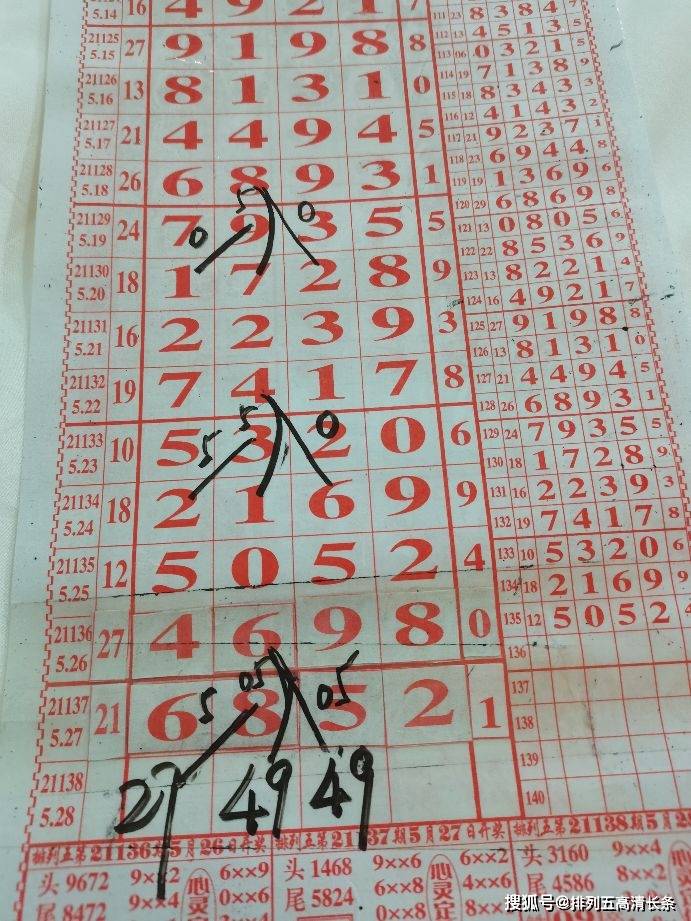 5.14 16 4 9 2 1 7
21125 5.15 27 9 1 9 8 8
21126 5.16 13 8 1 3 1 0
21127 5.17 21 4 4 9 4 5
21128 5.18 26 6 8 9 3 1
5 0
21129 5.19 24 7 9 3 5 5
0
21130 5.20 18 1 7 2 8 9
21131 5.21 16 2 2 3 9 3
21132 5.22 19 7 4 1 7 8
5 0
21133 5.23 10 5 3 2 0 6
5
21134 5.24 18 2 1 6 9 9
21135 5.25 12 5 0 5 2 4
21136 5.26 27 4 6 9 8 0
05 05
21137 5.27 21 6 8 5 2 1
5
21138 5.28
27 49 49
111 23 8 3 8 4 7
112 13 4 5 1 3 5
113 06 0 3 2 1 5
114 19 7 1 3 8 9
115 18 8 3 4 3 3
116 12 4 1 4 3 2
117 21 9 2 3 7 1
118 23 6 9 4 4 8
119 19 1 3 6 9 6
120 29 6 8 6 9 8
121 13 0 8 0 5 6
122 22 8 5 3 6 9
123 13 8 2 2 1 4
124 16 4 9 2 1 7
125 27 9 1 9 8 8
126 13 8 1 3 1 0
127 21 4 4 9 4 5
128 26 6 8 9 3 1
129 24 7 9 3 5 5
130 18 1 7 2 8 9
131 16 2 2 3 9 3
132 19 7 4 1 7 8
133 10 5 3 2 0 6
134 18 2 1 6 9 9
135 12 5 0 5 2 4
136
137
138
139
140
排列五第21136期5月26日开奖
头9672 9××2 6××9
尾8472 9××4 0××6
心灵
排列五第21137期5月27日开奖
头1468 9××6 6××2
尾5824 6××8 4××6
心灵
排列五第21138期5月28
头3160 9××4
尾4586 8××2
搜狐号@排列五高清长条